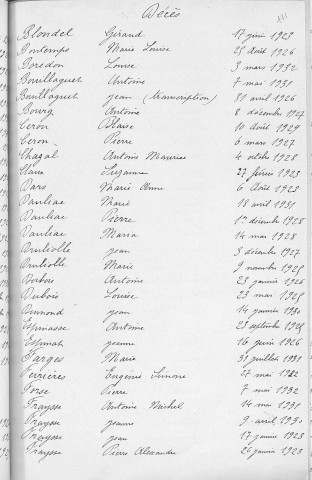 Décès
Blondel Girard 17 juin 1923
Bontemps Marie Louise 25 Août 1926
Louise 3 mars 1932
Bouillaguet Antoine 7 mai 1931
Bouillaguet jean (transcription) 31 avril 1926
Bourg Antoine 8 décembre 1927
Ceron Blaise 10 août 1929
Ceron Pierre 6 mars 1927
Chazal Antoine Maurice 4 octobre 1928
Suzanne 27 février 1923
Dars Marie Anne 6 Août 1923
Dauliac Marie 18 avril 1931
Dauliac Pierre décembre 1928
Dauliac Maria 14 mai 1928
jean 3 décembre 1927
Marie 9 novembre 1928
Dubois Antoine 23 janvier 1926
Dubois Louise 23 mai 1928
jean 14 janvier 1930
Espinasse Antoine 23 septembre 1928
jeanne 16 juin 1926
Farges Maria 31 juillet 1931
Ferrières Eugénie Simone 27 mai 1932
Pierre 7 mai 1932
Fraysse Antoine Michel 14 mai 1931
Fraysse jeanne 9 avril 1930
Fraysse jean 17 janvier 1923
Fraysse Pierre Alexandre 26 janvier 1923